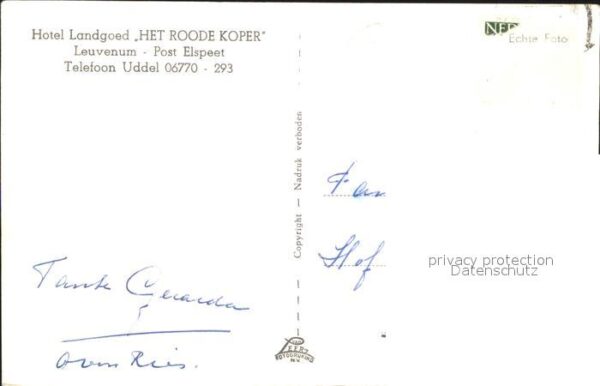 Hotel Landgoed „HET ROODE KOPER"
Leuvenum - Post Elspeet
Telefoon Uddel 06770 - 293
NED
Echte Foto
Copyright — Nadruk verboden
Fam
Hof
privacy protection
Datenschutz
Tante Gerarda
oom Ries.
FOTODRUKIND
N.V.